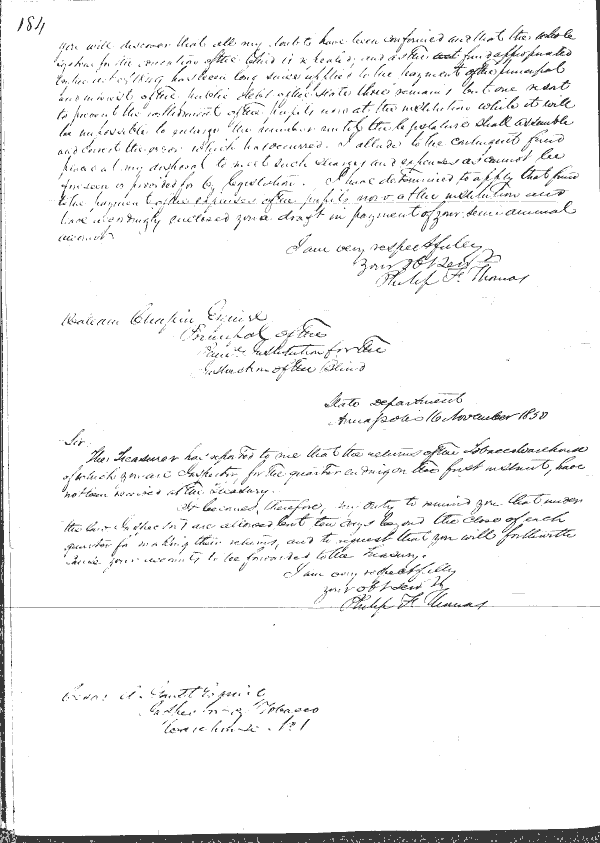 184
you will discover that all my doubts have been confirmed and that the whole
system for the education of the Blind is repealed, and as the fund appropriated
by the act of 1849, has been long since applied to the payment of the principal
and interest of the public debt of the State there remains but one resort
to prevent the withdrawal of the pupils now at the institution while it will
be impossible to enlarge the number until the legislature shall assemble
and correct the error which has occurred. I allude to the contingent fund
placed at my disposal to meet such charges and expenses as cannot be
foreseen or provided for by legislation. I have determined to apply that fund
to the payment of the expenses of the pupils now at the institution and
have accordingly enclosed you a draft in payment of your semi annual
account.
I am very respectfully
your obt servt
Philip F. Thomas
Chapin Esquire
Principal of the
Institution for the
Instruction of the Blind
State Department
Annapolis 16 November 1850
Sir,
The Treasurer has reported to me that the returns of the Tobacco Warehouse
of which you are Inspector, for the quarter ending on the first instant, have
not been received at the Treasury.
It becomes, therefore, my duty to remind you that under
the law Inspectors are allowed but ten days beyond the close of each
quarter for making their returns, and to request that you will forthwith
cause your accounts to be forwarded to the Treasury.
I am very respectfully
your obt servt
Philip F. Thomas
Gantt Esquire
Inspector of Tobacco
Warehouse No 1